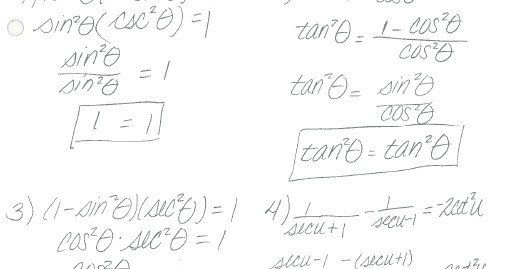 sin²θ(csc²θ)=1
sin²θ/sin²θ = 1
1 = 1
tan²θ = 1-cos²θ/cos²θ
tan²θ = sin²θ/cos²θ
tan²θ = tan²θ
3) (1-sin²θ)(sec²θ)=1
cos²θ·sec²θ=1
cos²θ
4) 1/secu+1 - 1/secu-1 = -2cot²u
secu-1 -(secu+1)